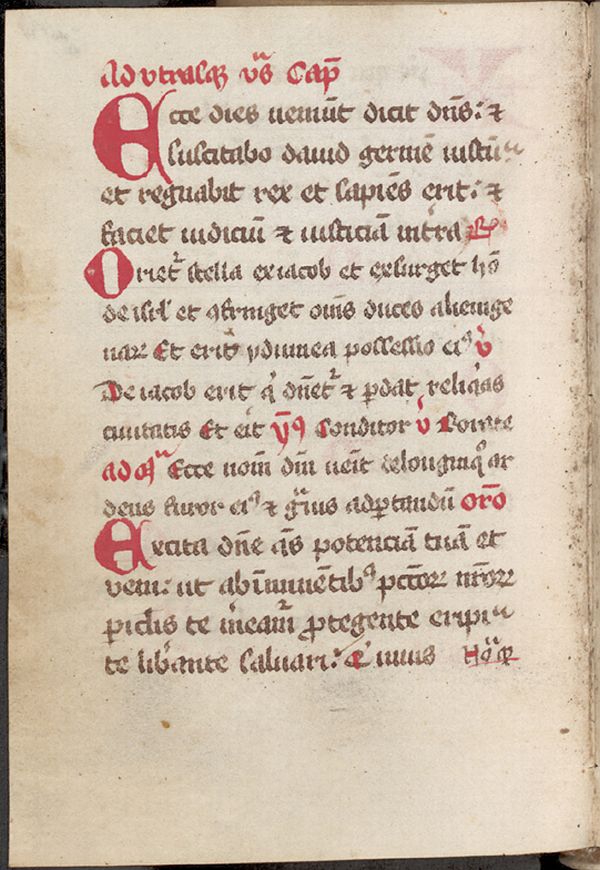 Ad vtrasq vs Cap
Ecce dies ueniut dicit dns: et
suscitabo dauid germē iustū
et regnabit rex et sapiēs erit: et
faciet iudiciū et iusticiā in tra R
Oriet stella ex iacob et exsurget hō
de isrl et ɔfringet om̄s duces alienige
naꝝ Et erit ydumea possessio eiꝰ v
De iacob erit q dn̄et et pdat reliqas
ciuitatis Et eīt ymꝰ Conditor v Rorate
ad m Ecce nom̄ dn̄i uēit de longinqo ar
dens furor eiꝰ et gͣuis ad portandū oro
Excita dn̄e qs potenciā tuā et
veni: ut ab īminētibꝰ pctoꝝ nr̄oꝝ
piclis te meam̄ ptegente eripi
te libante saluari: Q uiuis